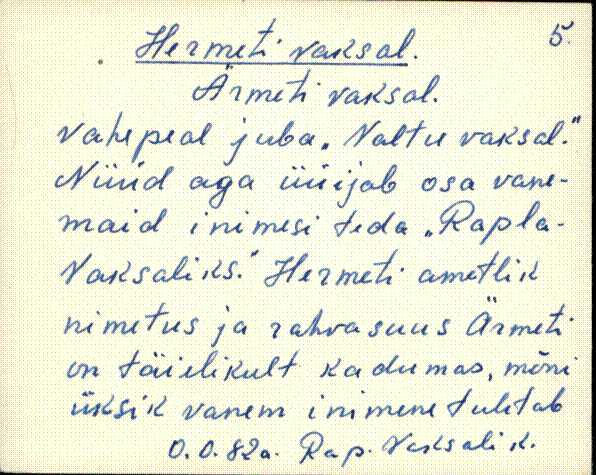 5.
Hermeti vaksal.
Ärmeti vaksal.
Vahepeal juba „Valtu vaksal."
Nüüd aga üüijab osa vane-
maid inimesi teda „Rapla-
Vaksaliks." Hermeti ametlik
nimetus ja rahvasuus Ärmeti
on täielikult kadumas, mõni
üksik vanem inimene tuletab
O.O. 82a. Rap. Vaksali k.